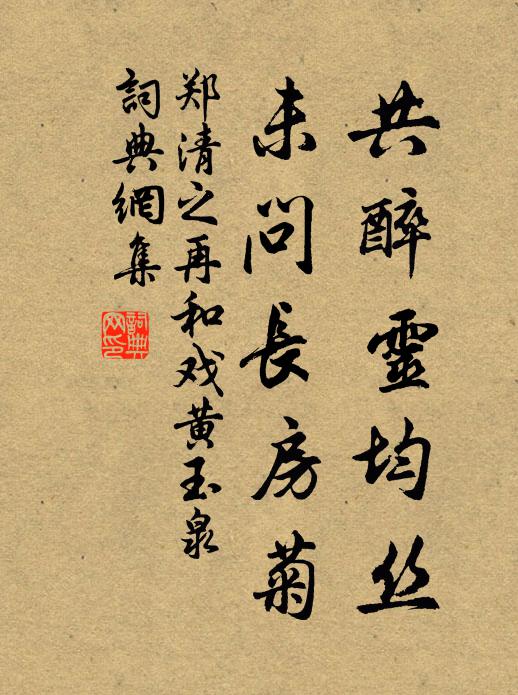 共醉靈均丝
未问長房菊
郑清之再和戏黄玉泉
詞典網集
詞典
网印